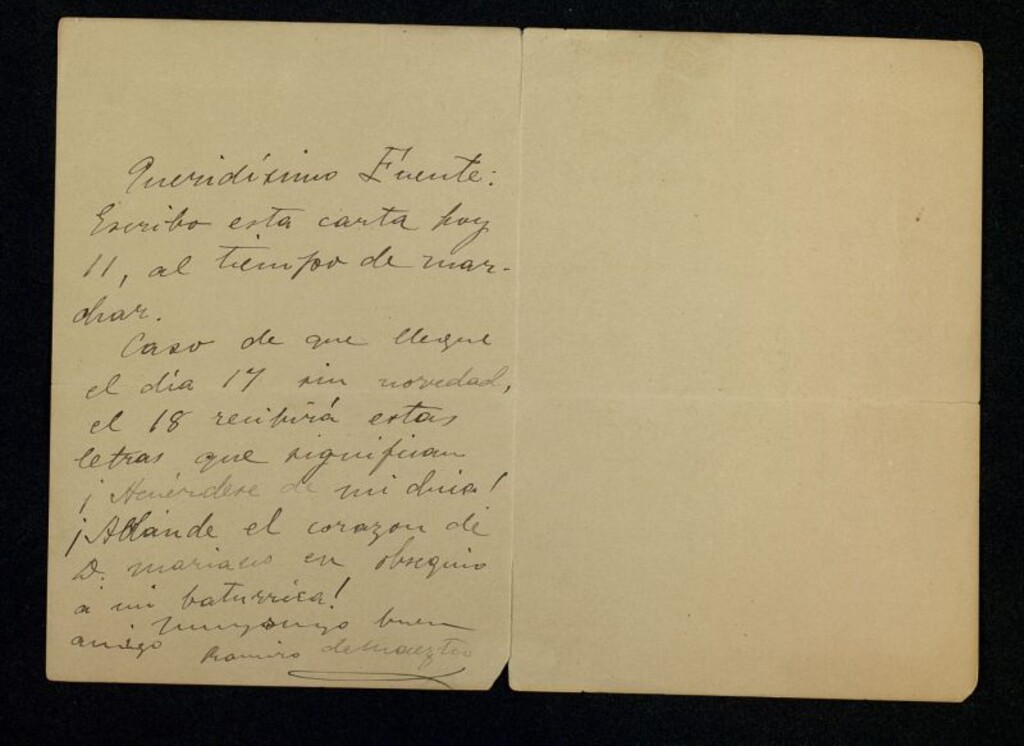 Queridísimo Fuente:
Escribo esta carta hoy
11, al tiempo de mar-
char.
Caso de que llegue
el día 17 sin novedad,
el 18 recibirá estas
letras que significan
¡Acuérdese de mi chica!
¡Ablande el corazon de
D. Mariano en obsequio
á mi baturrica!
muy suyo buen
amigo Ramiro de Maeztu